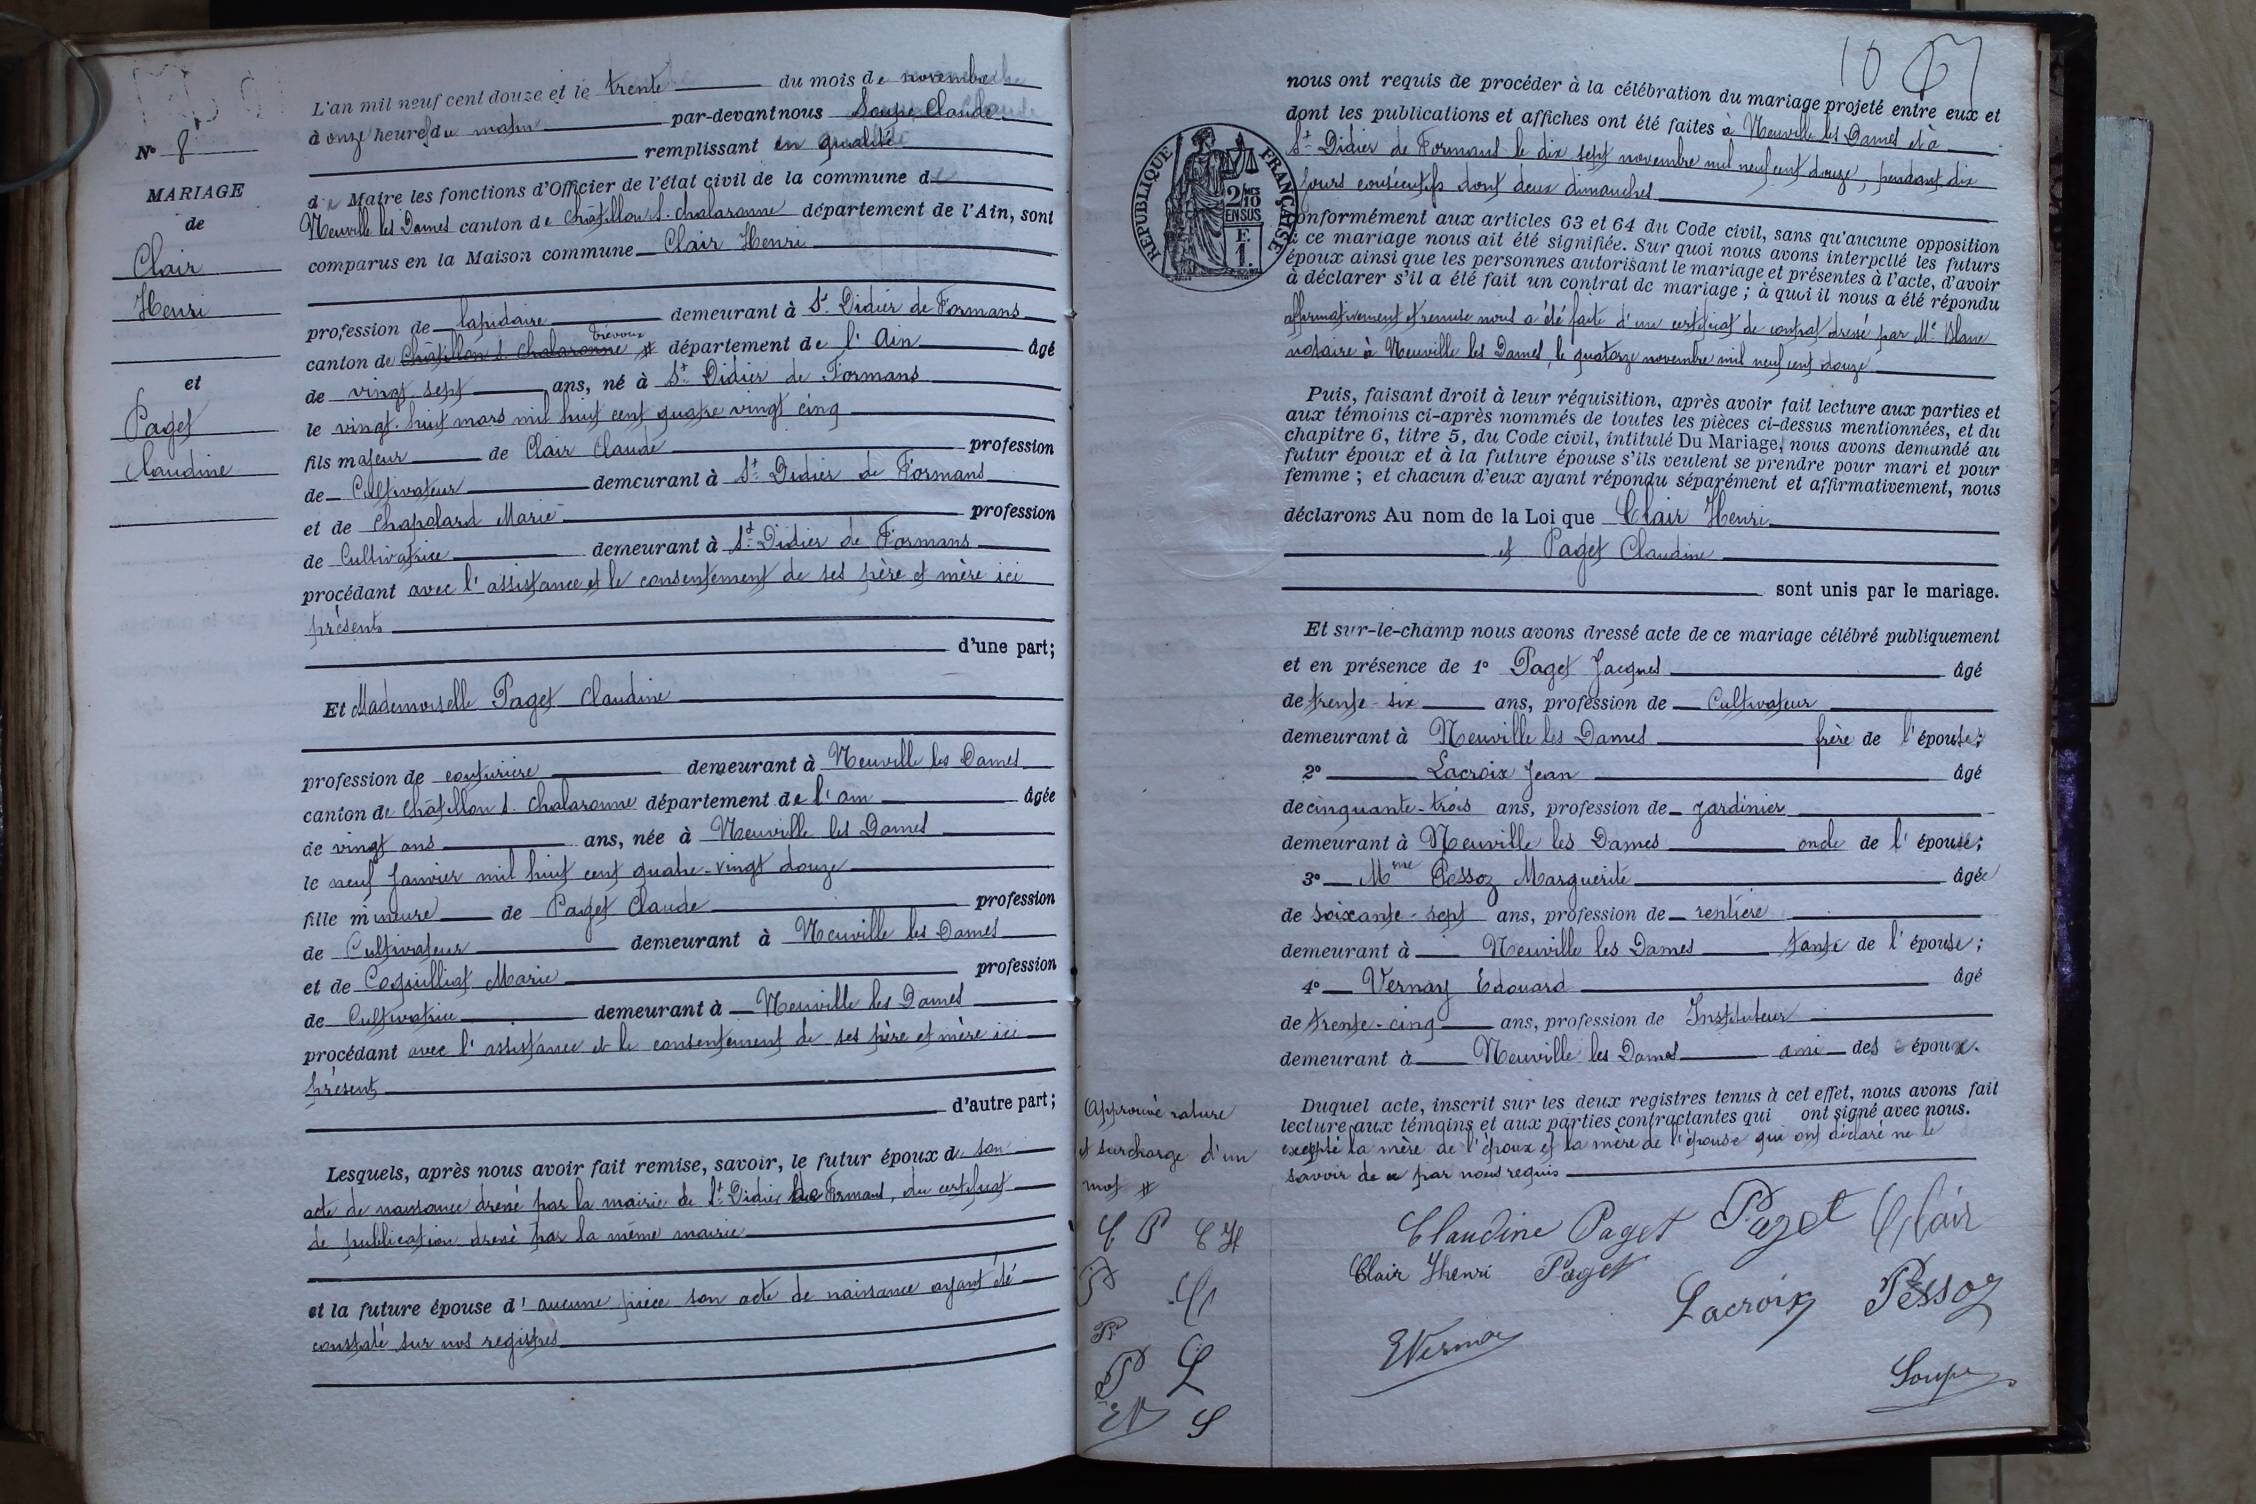 L'an mil neuf cent douze et le trente du mois de novembre
à onze heures du matin par-devant nous Soupe Claude
remplissant en qualité
de Maire les fonctions d'Officier de l'état civil de la commune de
Neuville les Dames canton de Châtillon s. Chalaronne département de l'Ain, sont
comparus en la Maison commune Clair Henri
profession de lapidaire demeurant à St Didier de Formans
Trévoux
canton de Châtillon s. Chalaronne # département de l'Ain âgé
de vingt-sept ans, né à St Didier de Formans
le vingt-huit mars mil huit cent quatre vingt cinq
fils majeur de Clair Claude profession
de Cultivateur demeurant à St Didier de Formans
et de Chapolard Marie profession
de Cultivatrice demeurant à St Didier de Formans
procédant avec l'assistance et le consentement de ses père et mère ici
présents
d'une part;
Et Mademoiselle Paget Claudine
profession de couturière demeurant à Neuville les Dames
canton de Châtillon s. Chalaronne département de l'ain âgée
de vingt ans ans, née à Neuville les Dames
le neuf Janvier mil huit cent quatre-vingt douze
fille mineure de Paget Claude profession
de Cultivateur demeurant à Neuville les Dames
et de Coquilliat Marie profession
de Cultivatrice demeurant à Neuville les Dames
procédant avec l'assistance et le consentement de ses père et mère ici
présents
d'autre part;
Lesquels, après nous avoir fait remise, savoir, le futur époux de son
acte de naissance dressé par la mairie de St Didier de Formans, du certificat
de publication dressé par la même mairie
et la future épouse d'aucune pièce son acte de naissance ayant été
constaté sur nos registres
N° 8
MARIAGE
de
Clair
Henri
et
Paget
Claudine
10
nous ont requis de procéder à la célébration du mariage projeté entre eux et
dont les publications et affiches ont été faites à Neuville les Dames et à
St Didier de Formans le dix sept novembre mil neuf cent douze, pendant dix
jours consécutifs dont deux dimanches
conformément aux articles 63 et 64 du Code civil, sans qu'aucune opposition
à ce mariage nous ait été signifiée. Sur quoi nous avons interpellé les futurs
époux ainsi que les personnes autorisant le mariage et présentes à l'acte, d'avoir
à déclarer s'il a été fait un contrat de mariage; à quoi il nous a été répondu
affirmativement et remise nous a été faite d'un certificat de contrat dressé par Me Blanc
notaire à Neuville les Dames, le quatorze novembre mil neuf cent douze
Puis, faisant droit à leur réquisition, après avoir fait lecture aux parties et
aux témoins ci-après nommés de toutes les pièces ci-dessus mentionnées, et du
chapitre 6, titre 5, du Code civil, intitulé Du Mariage, nous avons demandé au
futur époux et à la future épouse s'ils veulent se prendre pour mari et pour
femme; et chacun d'eux ayant répondu séparément et affirmativement, nous
déclarons Au nom de la Loi que Clair Henri
et Paget Claudine
sont unis par le mariage.
Et sur-le-champ nous avons dressé acte de ce mariage célébré publiquement
et en présence de 1° Paget Jacques âgé
de trente-six ans, profession de Cultivateur
demeurant à Neuville les Dames frère de l'épouse;
2° Lacroix Jean âgé
de cinquante-trois ans, profession de jardinier
demeurant à Neuville les Dames oncle de l'épouse;
3° Mme Pessoz Marguerite âgée
de soixante-sept ans, profession de rentière
demeurant à Neuville les Dames tante de l'épouse;
4° Vernay Edouard âgé
de trente-cinq ans, profession de Instituteur
demeurant à Neuville les Dames ami des époux.
Duquel acte, inscrit sur les deux registres tenus à cet effet, nous avons fait
lecture aux témoins et aux parties contractantes qui ont signé avec nous.
excepté la mère de l'époux et la mère de l'épouse qui ont déclaré ne le
savoir de ce par nous requis
Claudine Paget Paget Clair
Clair Henri Paget
Lacroix Pessoz
EVernay
Soupe
RÉPUBLIQUE FRANÇAISE
2/10 MES
EN SUS
F.
1.
Approuvé rature
et surcharge d'un
mot #
C P C H
P Cl
P
P L
EV S